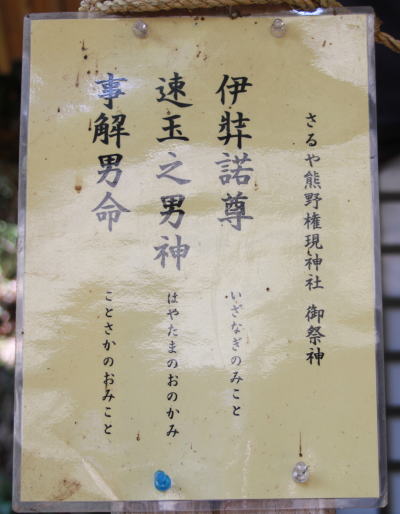 さるや熊野権現神社 御祭神
伊弉諾尊 いざなぎのみこと
速玉之男神 はやたまのおのかみ
事解男命 ことさかのおみこと